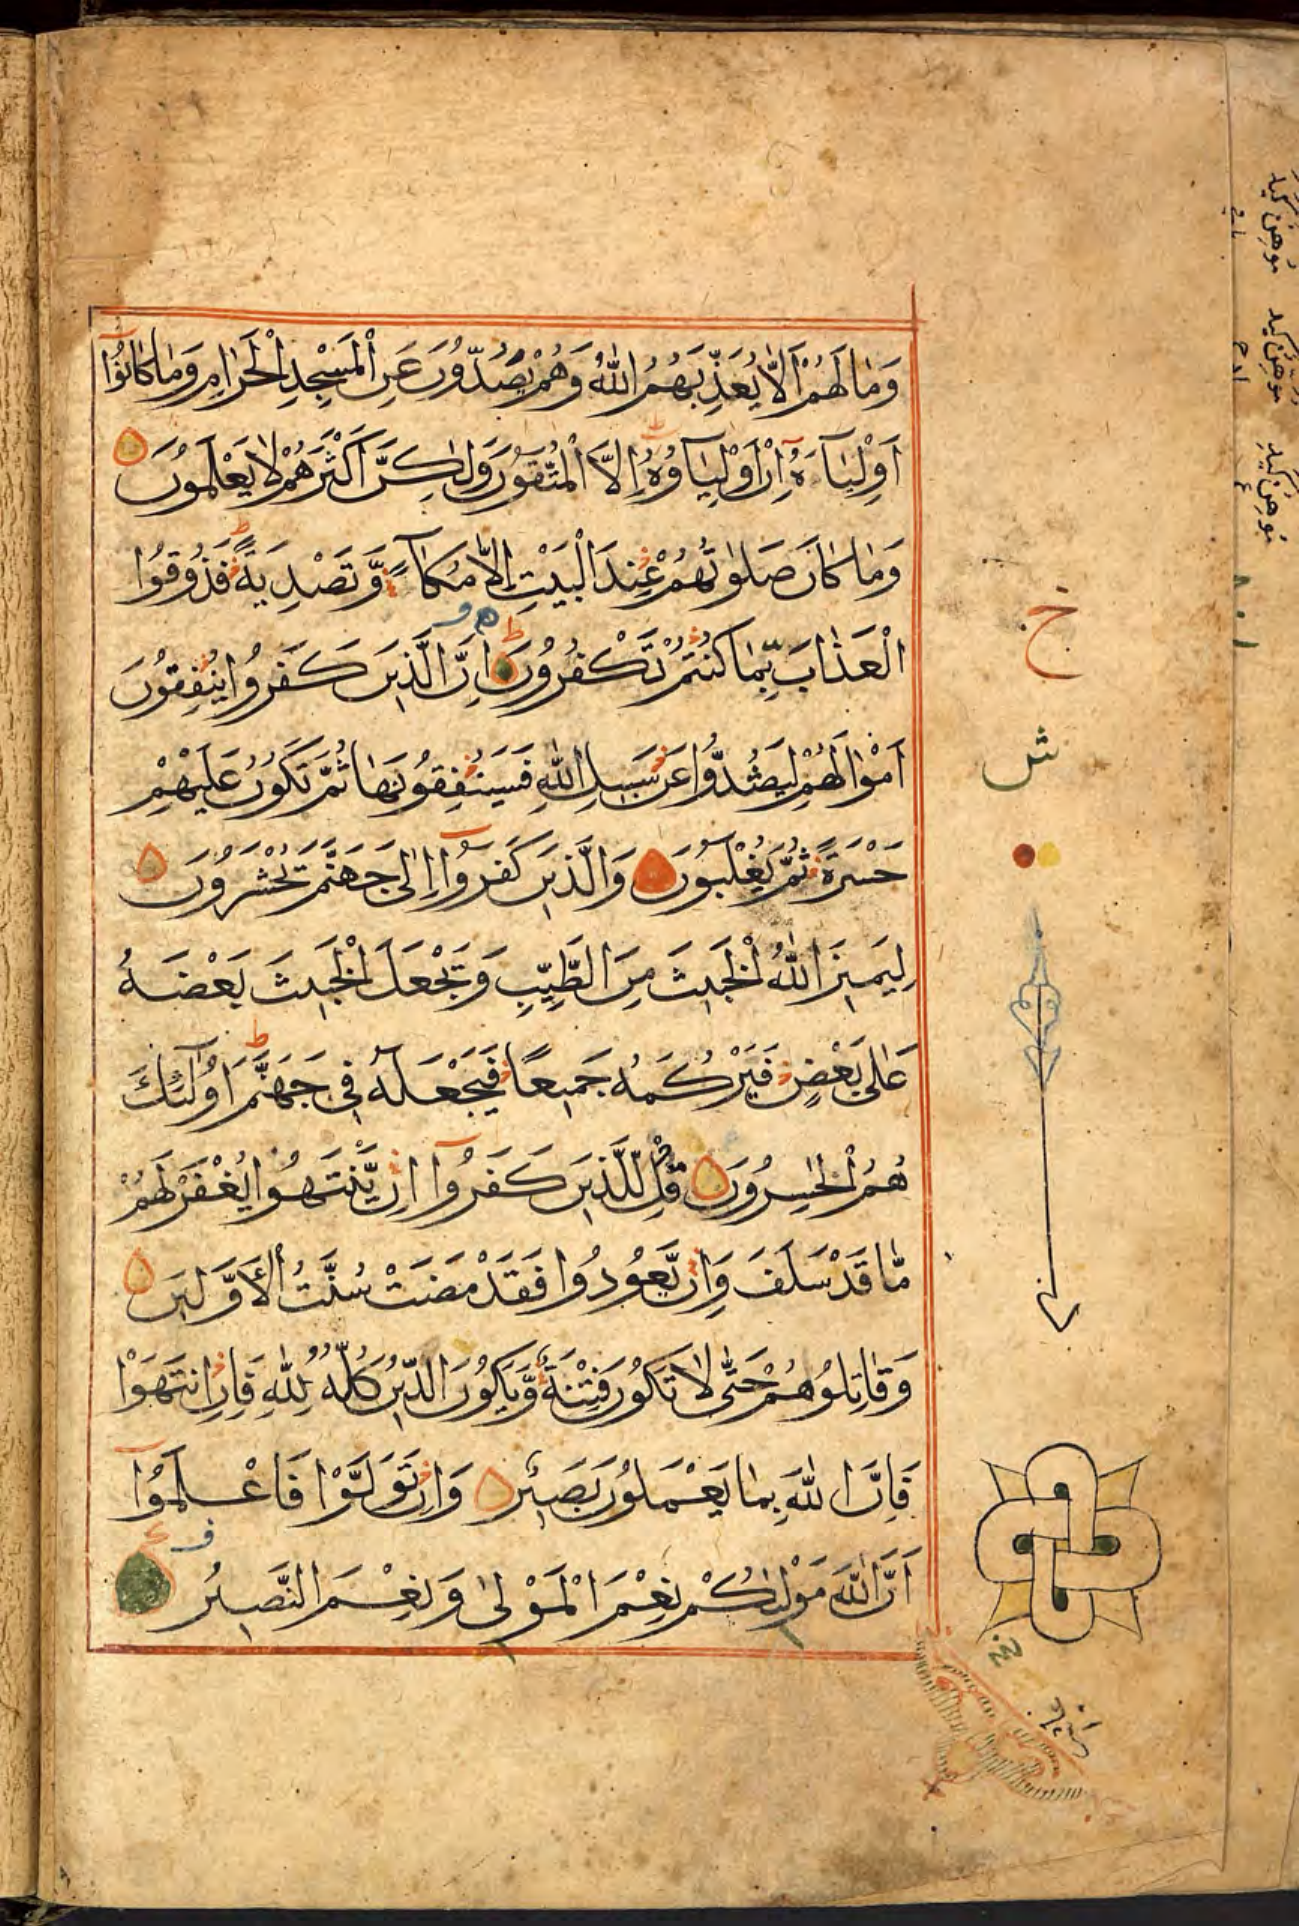 وَمَا لَهُمْ اَلَّا يُعَذِّبَهُمُ اللّٰهُ وَهُمْ يَصُدُّوْنَ عَنِ الْمَسْجِدِ الْحَرَامِ وَمَا كَانُوْٓا
اَوْلِيَآءَهٗ اِنْ اَوْلِيَآؤُهٗٓ اِلَّا الْمُتَّقُوْنَ وَلٰكِنَّ اَكْثَرَهُمْ لَا يَعْلَمُوْنَ
وَمَا كَانَ صَلَاتُهُمْ عِنْدَ الْبَيْتِ اِلَّا مُكَآءً وَّتَصْدِيَةً ط فَذُوْقُوا
الْعَذَابَ بِمَا كُنْتُمْ تَكْفُرُوْنَ ط اِنَّ الَّذِيْنَ كَفَرُوْا يُنْفِقُوْنَ
اَمْوَالَهُمْ لِيَصُدُّوْا عَنْ سَبِيْلِ اللّٰهِ فَسَيُنْفِقُوْنَهَا ثُمَّ تَكُوْنُ عَلَيْهِمْ
حَسْرَةً ثُمَّ يُغْلَبُوْنَ وَالَّذِيْنَ كَفَرُوْٓا اِلٰى جَهَنَّمَ يُحْشَرُوْنَ
لِيَمِيْزَ اللّٰهُ الْخَبِيْثَ مِنَ الطَّيِّبِ وَيَجْعَلَ الْخَبِيْثَ بَعْضَهٗ
عَلٰى بَعْضٍ فَيَرْكُمَهٗ جَمِيْعًا فَيَجْعَلَهٗ فِيْ جَهَنَّمَ ط اُولٰٓئِكَ
هُمُ الْخٰسِرُوْنَ قُلْ لِّلَّذِيْنَ كَفَرُوْٓا اِنْ يَّنْتَهُوْا يُغْفَرْ لَهُمْ
مَّا قَدْ سَلَفَ وَاِنْ يَّعُوْدُوْا فَقَدْ مَضَتْ سُنَّتُ الْاَوَّلِيْنَ
وَقَاتِلُوْهُمْ حَتّٰى لَا تَكُوْنَ فِتْنَةٌ وَّيَكُوْنَ الدِّيْنُ كُلُّهٗ لِلّٰهِ فَاِنِ انْتَهَوْا
فَاِنَّ اللّٰهَ بِمَا يَعْمَلُوْنَ بَصِيْرٌ وَاِنْ تَوَلَّوْا فَاعْلَمُوْٓا
اَنَّ اللّٰهَ مَوْلٰىكُمْ نِعْمَ الْمَوْلٰى وَنِعْمَ النَّصِيْرُ
خ
ش